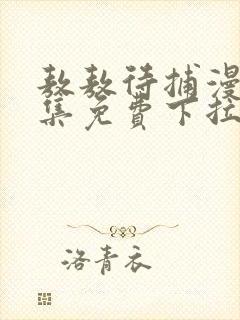 敖敖待捕漫
集免費下拉
洛青衣